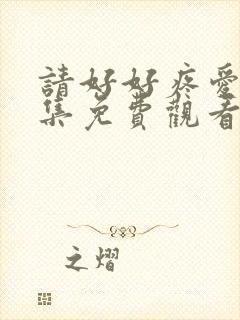 請好好疼愛
集免費觀看
之熠